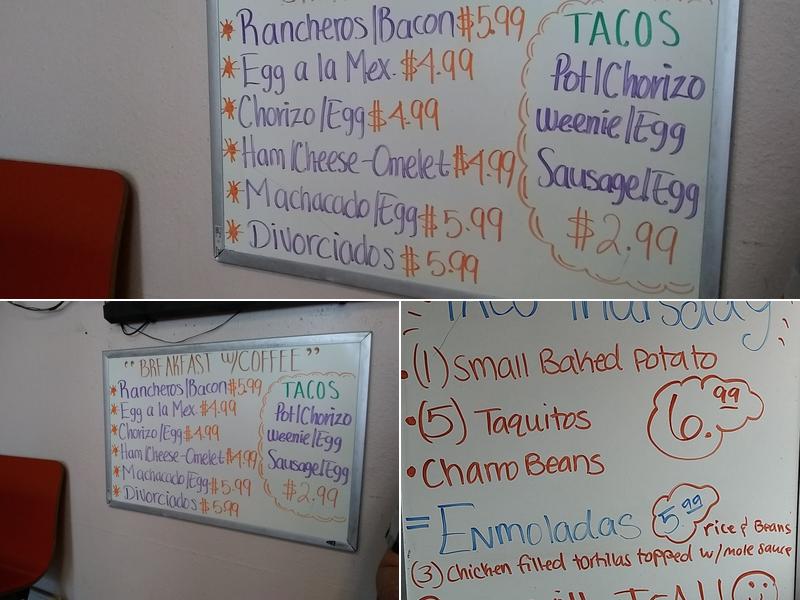 Rancheros/Bacon $5.99
Egg a la Mex. $4.99
Chorizo/Egg $4.99
Ham/Cheese-Omelet $4.99
Machacado/Egg $5.99
Divorciados $5.99
TACOS
Pot/Chorizo
weenie/Egg
Sausage/Egg
$2.99
"BREAKFAST W/COFFEE"
Rancheros/Bacon $5.99
Egg a la Mex. $4.99
Chorizo/Egg $4.99
Ham/Cheese-Omelet $4.99
Machacado/Egg $5.99
Divorciados $5.99
TACOS
Pot/Chorizo
weenie/Egg
Sausage/Egg
$2.99
Taco Thursday
(1) Small Baked Potato
(5) Taquitos
6.99
Charro Beans
= Enmoladas 5.99 rice & Beans
(3) Chicken filled tortillas topped w/ mole sauce